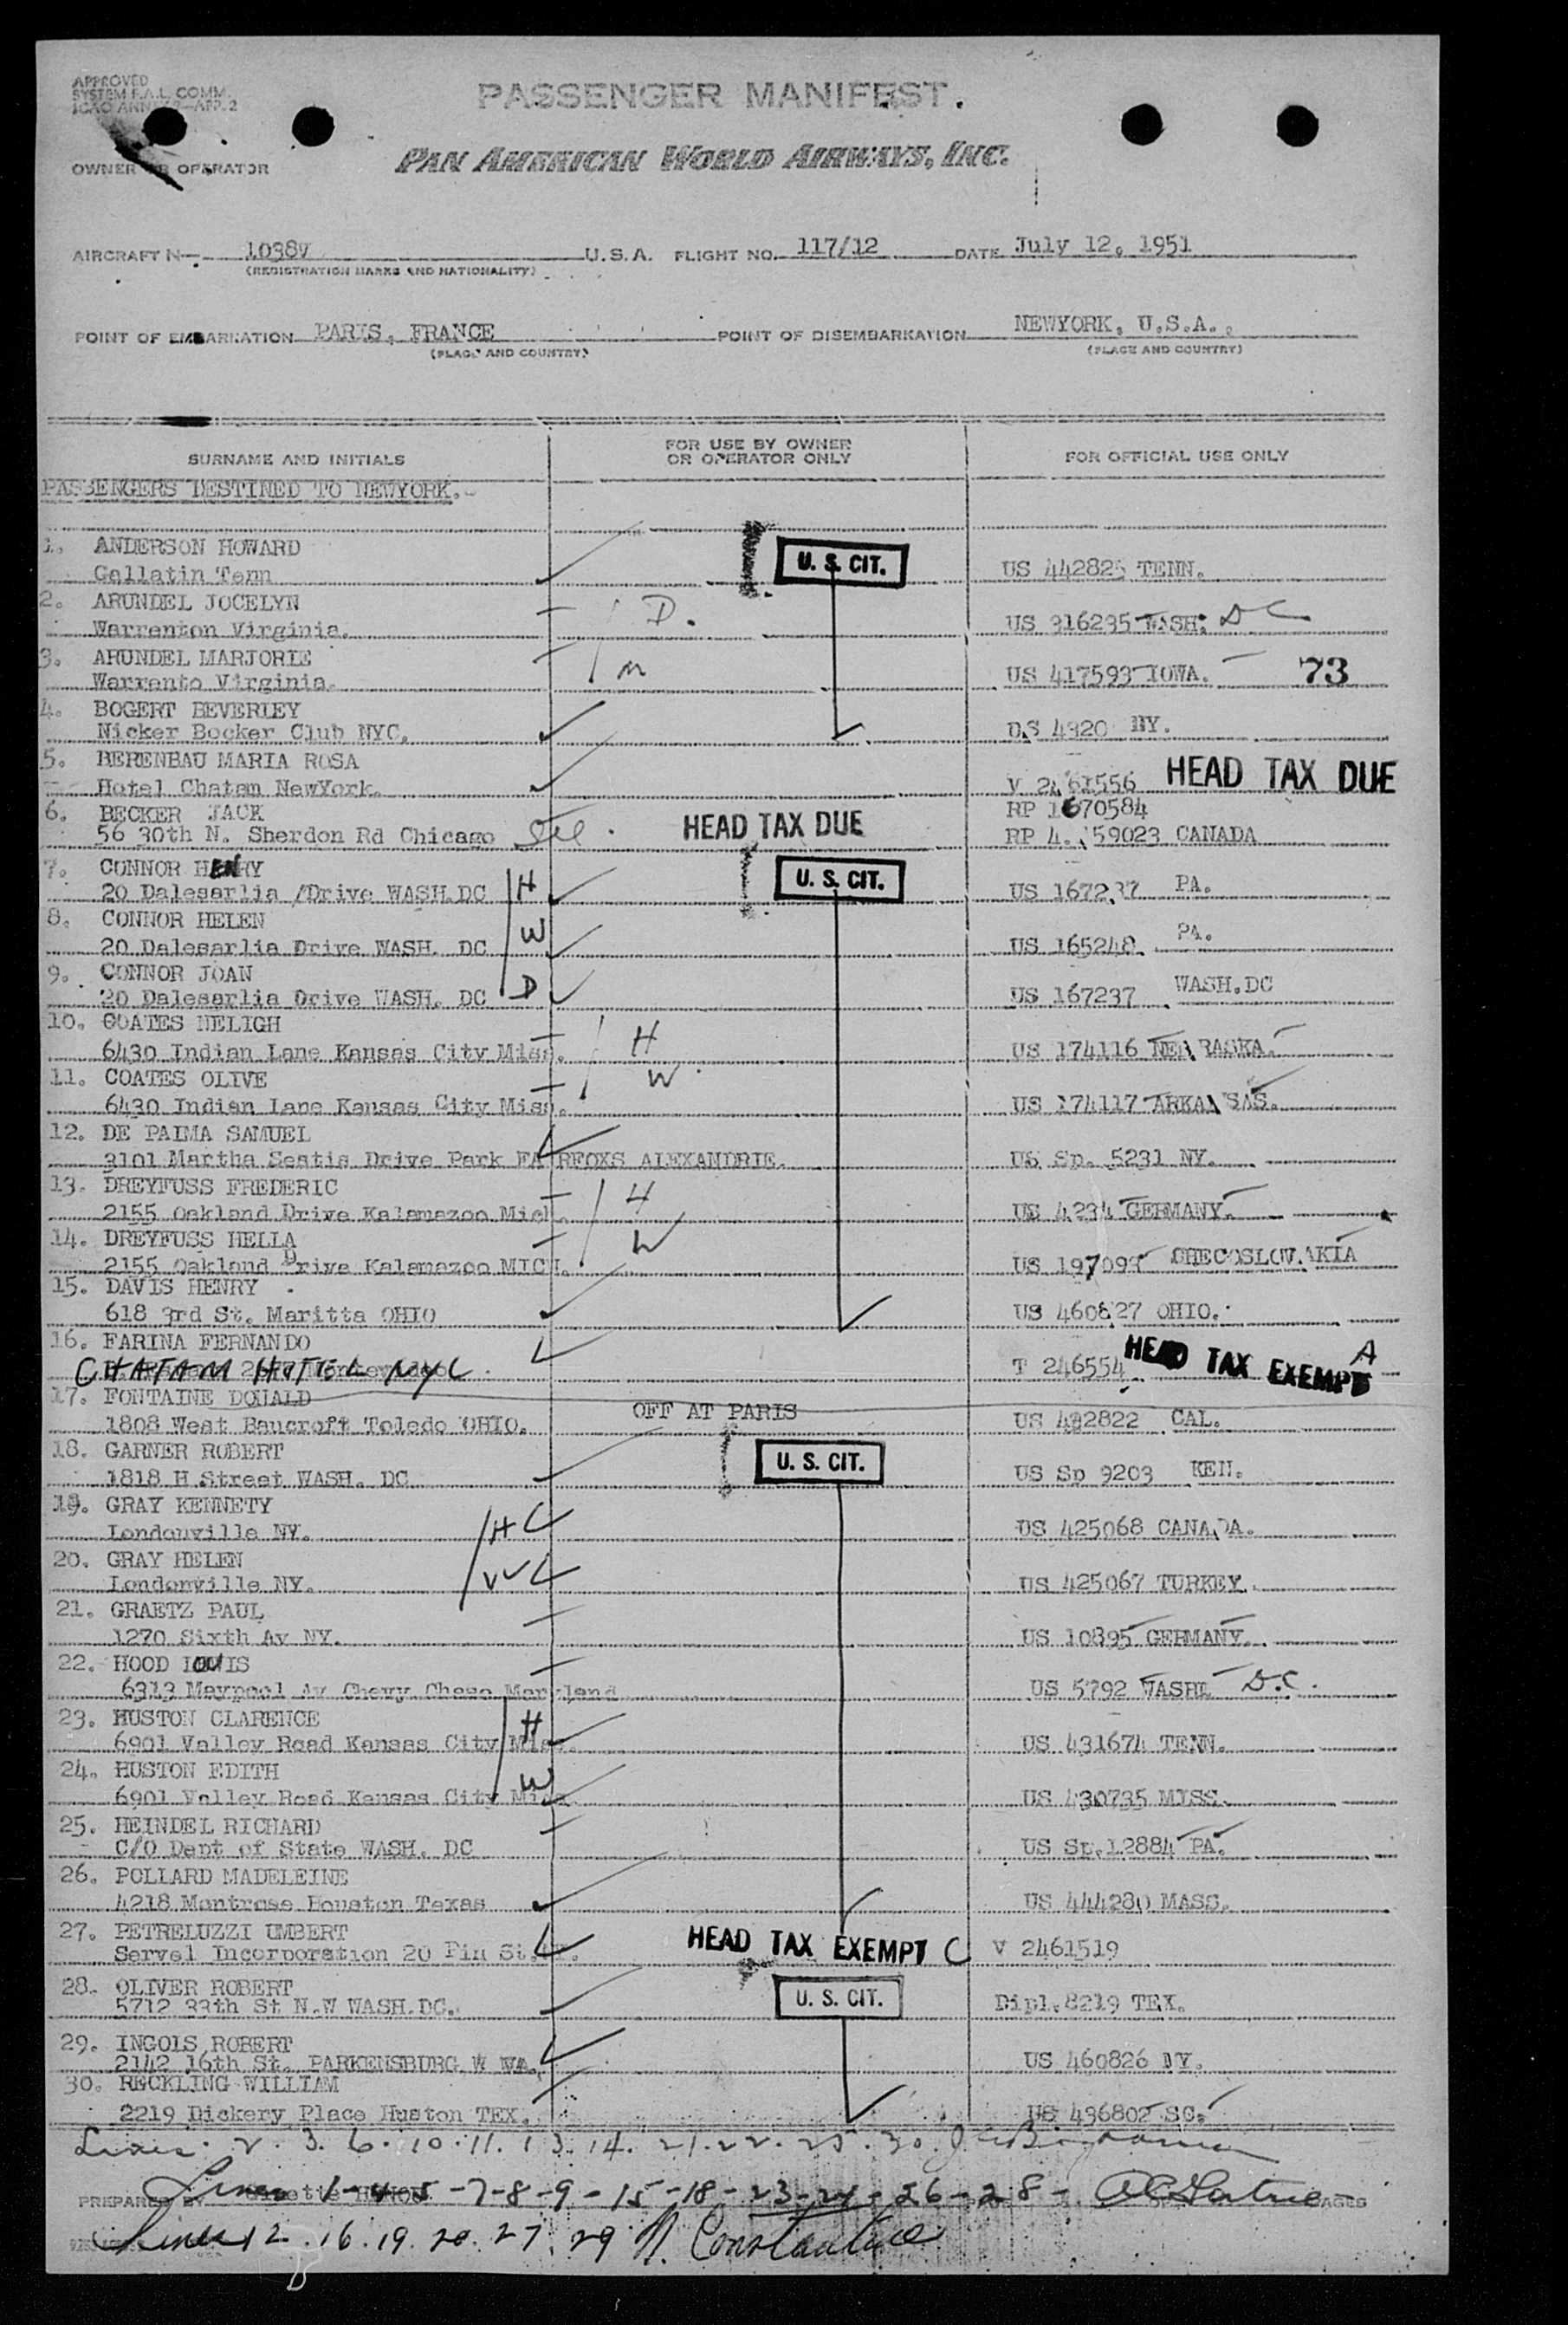 APPROVED
SYSTEM F.A.L. COMM.
ICAO ANNEX 9—APP. 2
PASSENGER MANIFEST.
OWNER OR OPERATOR
PAN AMERICAN WORLD AIRWAYS, INC.
AIRCRAFT N 1038V U.S.A. FLIGHT NO. 117/12 DATE July 12, 1951
(REGISTRATION MARKS AND NATIONALITY)
POINT OF EMBARKATION PARIS, FRANCE POINT OF DISEMBARKATION NEWYORK, U.S.A.
(PLACE AND COUNTRY) (PLACE AND COUNTRY)
SURNAME AND INITIALS FOR USE BY OWNER OR OPERATOR ONLY FOR OFFICIAL USE ONLY
PASSENGERS DESTINED TO NEWYORK.
1. ANDERSON HOWARD U. S. CIT.
Gallatin Tenn US 442825 TENN.
2. ARUNDEL JOCELYN D.
Warrenton Virginia. US 316235 WASH. DC
3. ARUNDEL MARJORIE M 73
Warrento Virginia. US 417593 IOWA.
4. BOGERT BEVERLEY
Nicker Bocker Club NYC. DS 4320 NY.
5. BERENBAU MARIA ROSA
Hotel Chatam NewYork. V 2461556 HEAD TAX DUE
6. BECKER JACK HEAD TAX DUE RP 1670584
56 30th N. Sherdon Rd Chicago RP 4. 59023 CANADA
7. CONNOR HENRY H U. S. CIT.
20 Dalesarlia /Drive WASH.DC US 167237 PA.
8. CONNOR HELEN W
20 Dalesarlia Drive WASH. DC US 165248 PA.
9. CONNOR JOAN D
20 Dalesarlia Drive WASH. DC US 167237 WASH.DC
10. COATES NELIGH H
6430 Indian Lane Kansas City Miss. US 174116 NEBRASKA.
11. COATES OLIVE W
6430 Indian Lane Kansas City Miss. US 174117 ARKANSAS.
12. DE PALMA SAMUEL
3101 Martha Sestis Drive Park FAIRFOXS ALEXANDRIE. US Sp. 5231 NY.
13. DREYFUSS FREDERIC H
2155 Oakland Drive Kalamazoo Mich. US 4234 GERMANY.
14. DREYFUSS HELLA W
2155 Oakland Drive Kalamazoo MICH. US 197093 CHECOSLOVAKIA
15. DAVIS HENRY
618 3rd St. Maritta OHIO US 460827 OHIO.
16. FARINA FERNANDO
CHATAM HOTEL NYC T 246554 HEAD TAX EXEMPT A
17. FONTAINE DONALD OFF AT PARIS
1808 West Bancroft Toledo OHIO. US 432822 CAL.
18. GARNER ROBERT U. S. CIT.
1818 H Street WASH. DC US Sp 9203 KEN.
19. GRAY KENNETY H
Londonville NY. US 425068 CANADA.
20. GRAY HELEN W
Londonville NY. US 425067 TURKEY.
21. GRAETZ PAUL
1270 Sixth Av NY. US 10895 GERMANY.
22. HOOD LOUIS
6313 Maypool Av Chevy Chase Maryland US 5792 WASH. D.C.
23. HUSTON CLARENCE H
6901 Valley Road Kansas City Miss. US 431674 TENN.
24. HUSTON EDITH W
6901 Valley Road Kansas City Miss. US 430735 MISS.
25. HEINDEL RICHARD
C/O Dept of State WASH. DC US Sp.12884 PA.
26. POLLARD MADELEINE
4218 Montrose Houston Texas US 444280 MASS.
27. PETRELUZZI UMBERT HEAD TAX EXEMPT C
Servel Incorporation 20 Pin St. V 2461519
28. OLIVER ROBERT U. S. CIT.
5712 33th St N.W WASH.DC. Dipl. 8219 TEX.
29. INGOLS ROBERT
2142 16th St. PARKENSBURG W VA. US 460826 NY.
30. RECKLING WILLIAM
2219 Dickery Place Huston TEX. US 436802 SC.
Lines. 2. 3. 6. 10. 11. 13. 14. 21. 22. 25. 30.
PREPARED BY Lines 1-4-5-7-8-9-15-18-23-24-26-28- PAGES
Lines 12. 16. 19. 20. 27. 29 N. Constantine